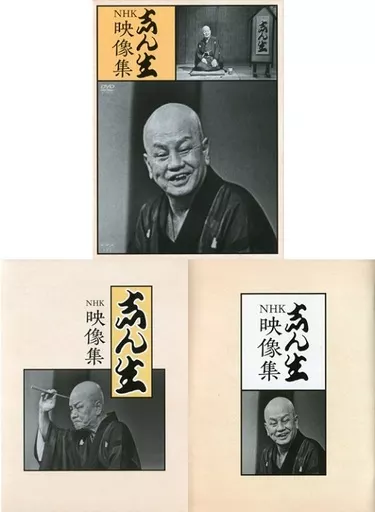 志ん生
NHK
映像集
DVD
志ん生
志ん生
NHK
映像集
志ん生
NHK
映像集